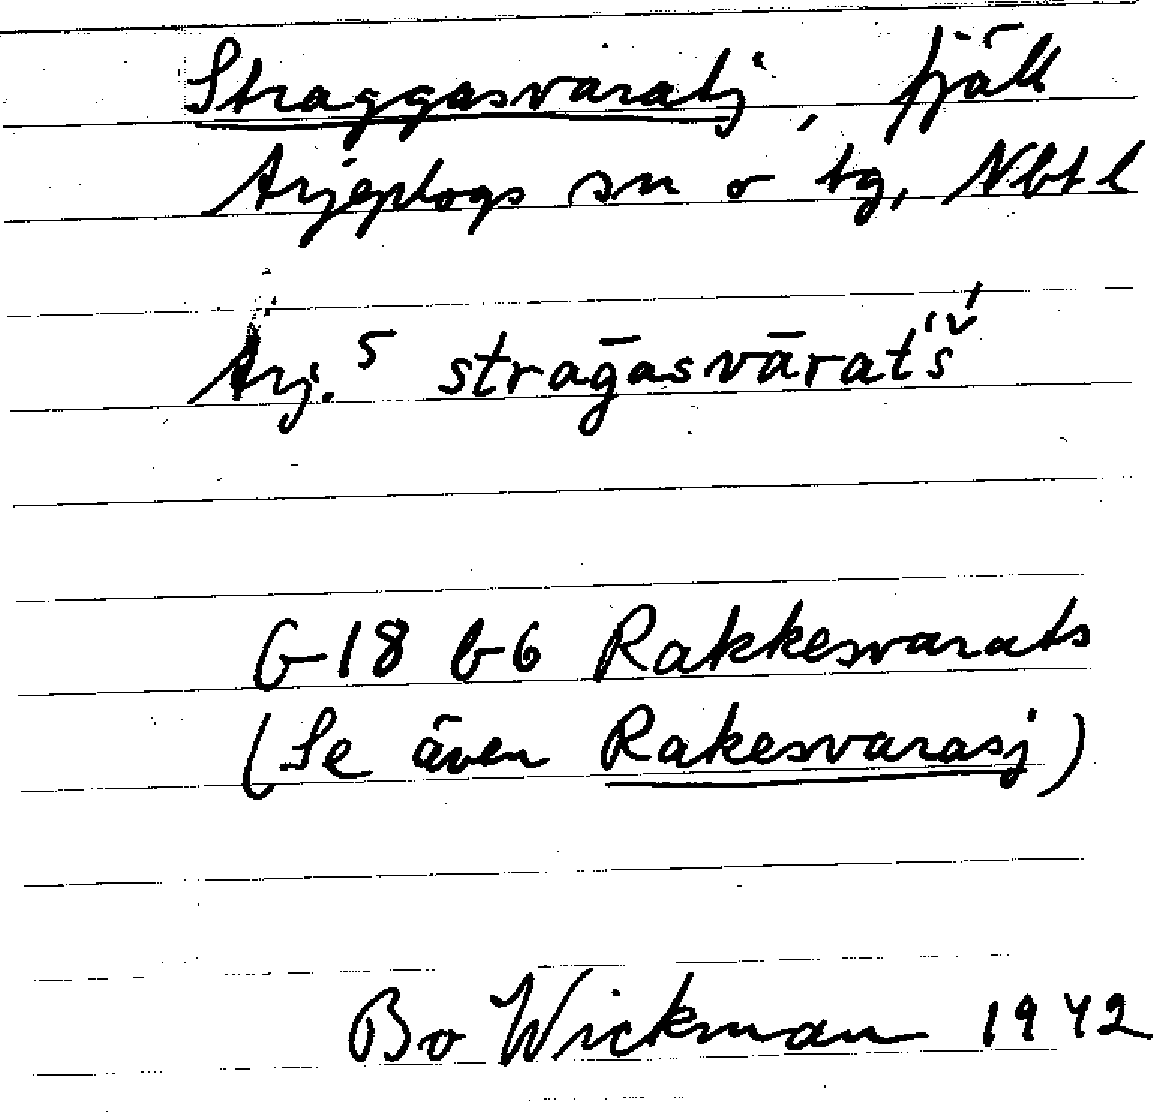 Straggasvaratj, fjäll
Arjeplogs sn o tg, Nbt l
Arj. 5 strag̅asvāratš́
G-18 b6 Rakkesvarats
(Se även Rakesvarasj)
Bo Wickman 1942